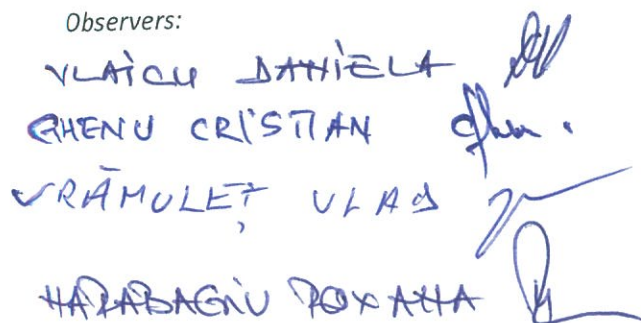 Observers:
VLAICU DANIELA
GHENU CRISTIAN
VRĂMULEȚ VLAD
HARABAGIU ROXANA